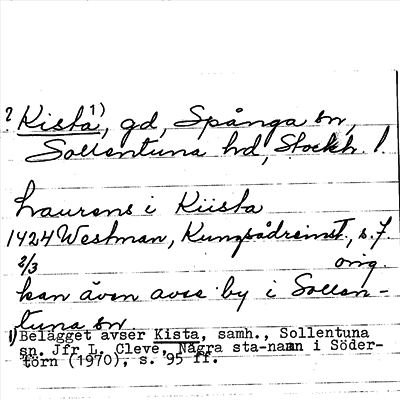 ? Kista 1), gd, Spånga sn,
Sollentuna hd, Stockh. l.
Laurens i Kiista
1424 Westman, Kungsådreinst., s. 7.
2/3 orig.
kan även avse by i Sollen-
tuna sn.
1) Belägget avser Kista, samh., Sollentuna
sn. Jfr L. Cleve, Några sta-namn i Söder-
törn (1970), s. 95 ff.